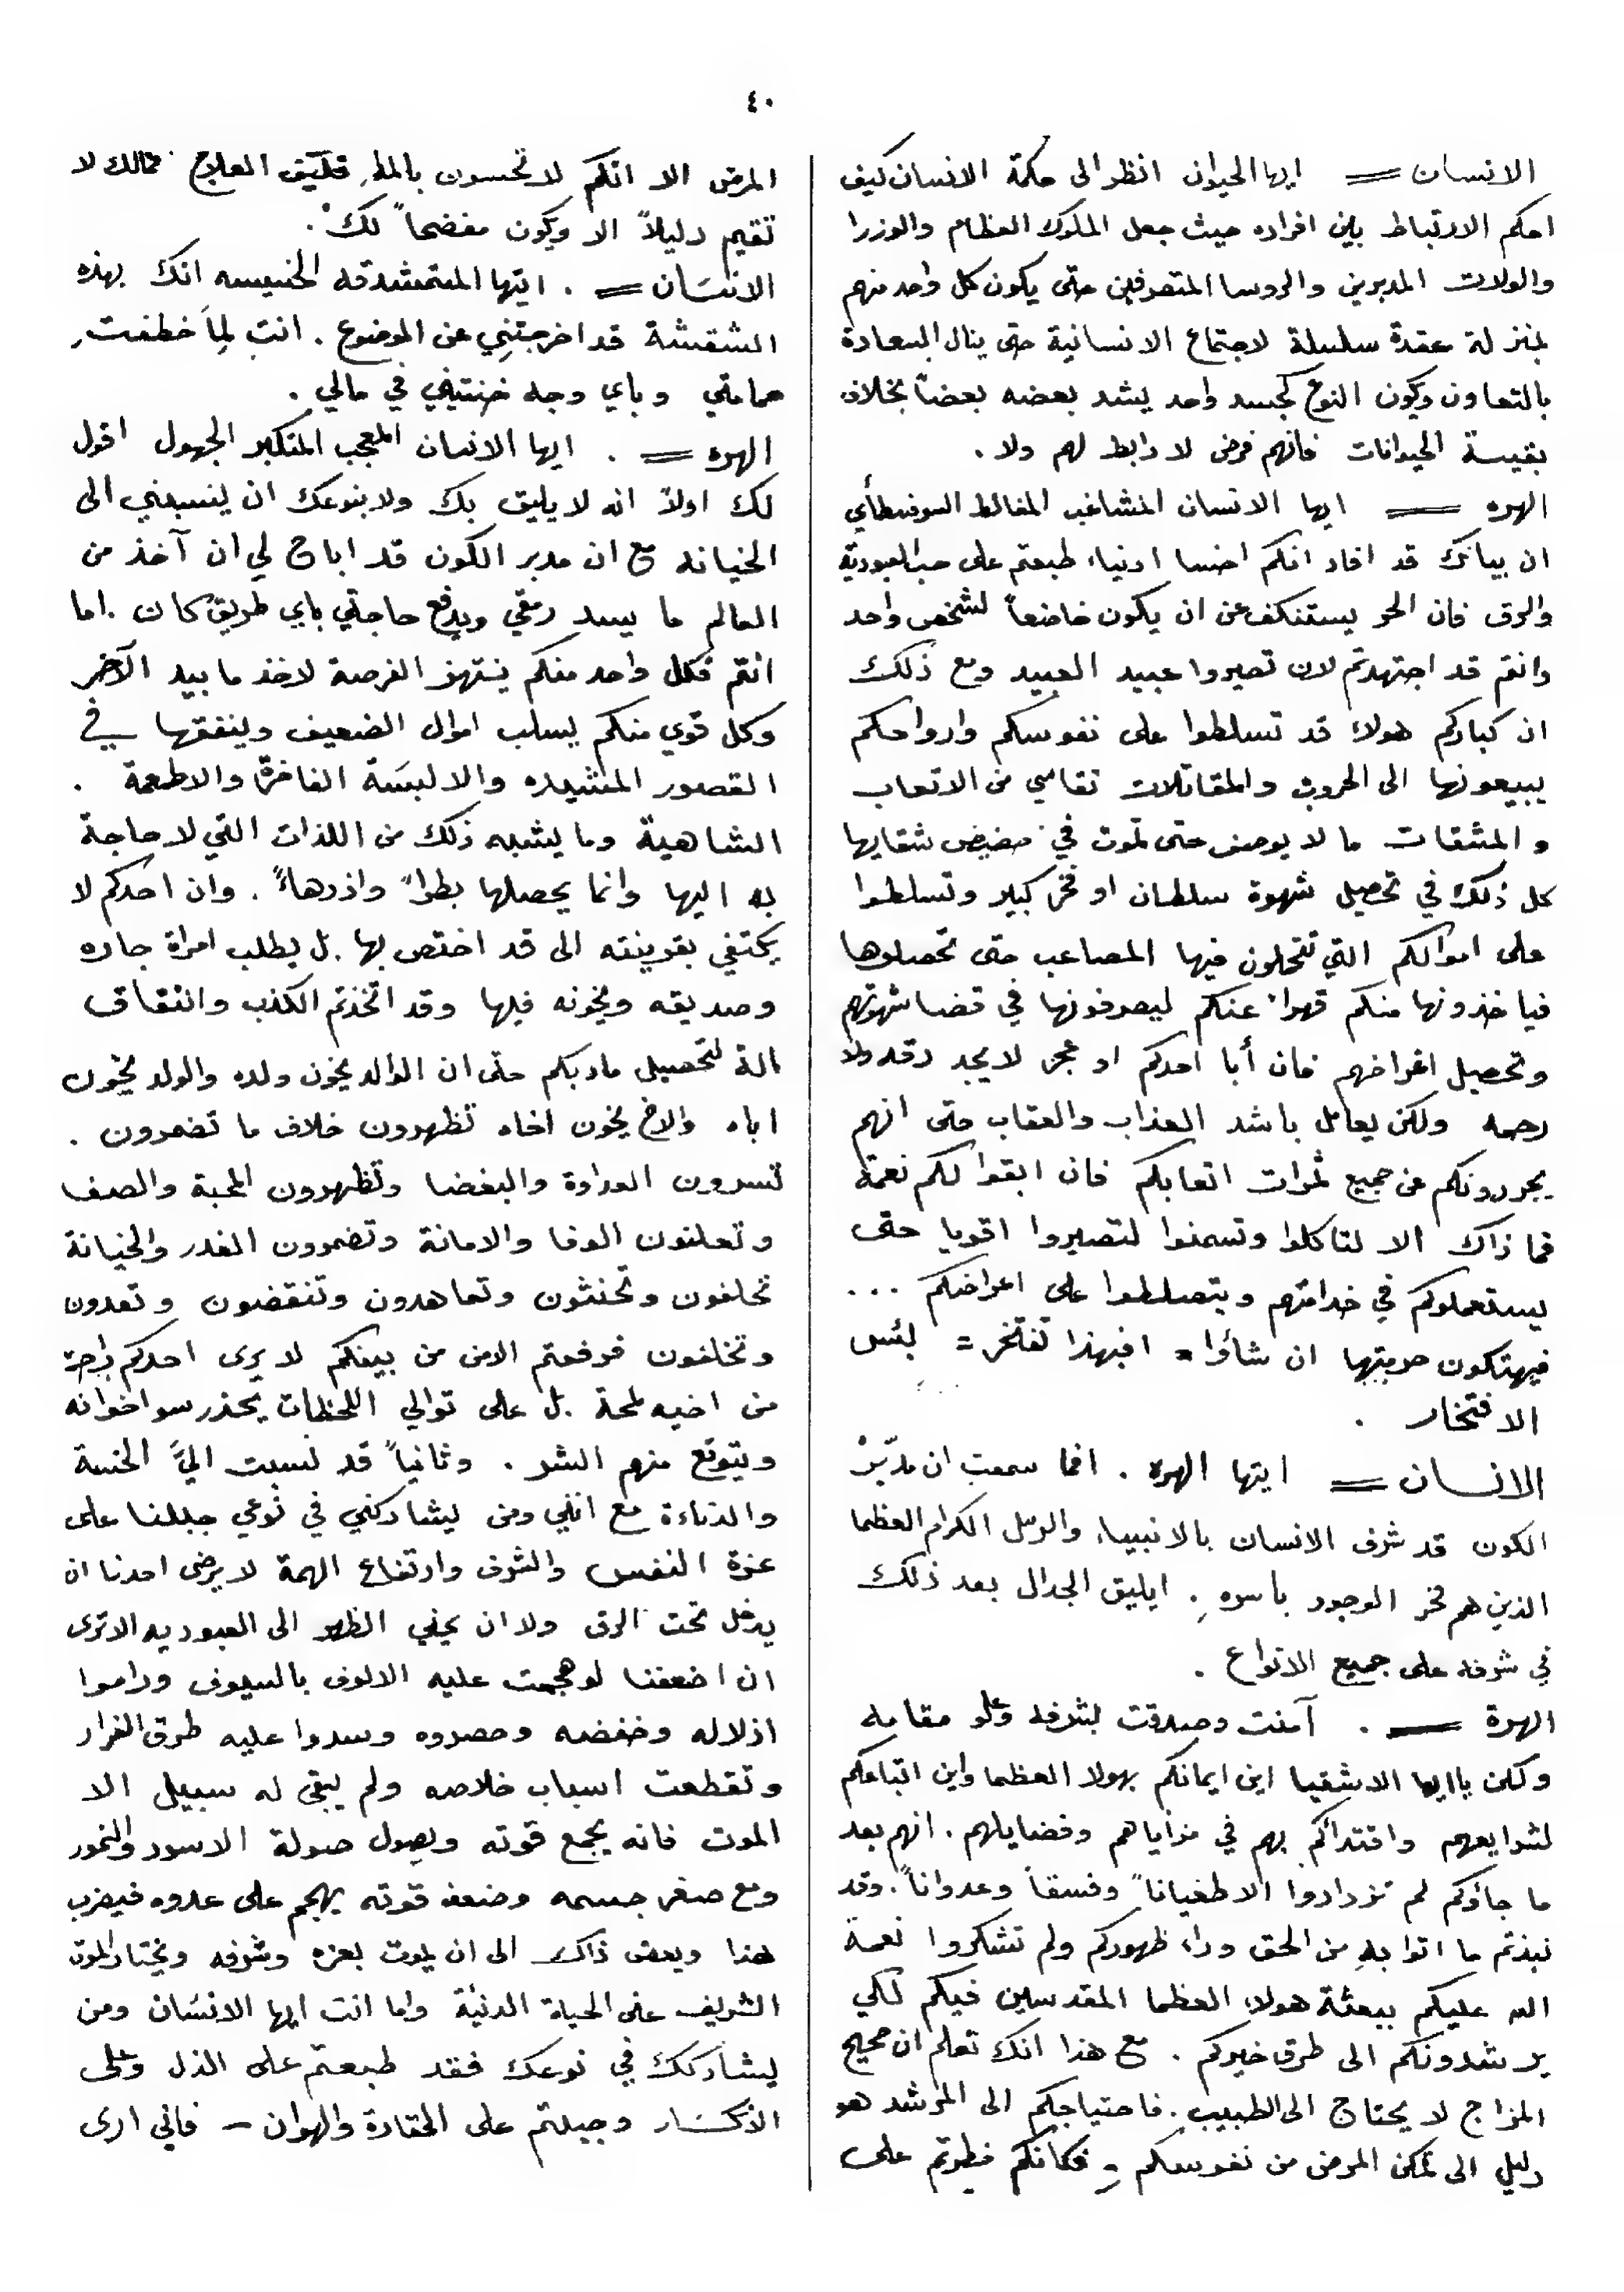 ٤٠
الانسان = ايها الحيوان انظر الى حكمة الانسان كيف
احكم الارتباط بين افراده حيث جعل الملوك العظام والوزرا
والولات المدبرين والروسا المتصرفين حتى يكون كل واحد منهم
بمنزلة عقدة سلسلة لاجتماع الانسانية حتى ينال السعادة
بالتعاون ويكون النوع كجسد واحد يشد بعضه بعضاً بخلاف
بقيسة الحيوانات فانهم فوضى لا رابط لهم ولا .
الهره = ايها الانسان المشاغب المغالط السوفسطأي
ان بيانك قد افاد انكم اخسا ادنياء طبعتم على حب العبودية
والرق فان الحر يستنكف عن ان يكون خاضعاً لشخص واحد
وانتم قد اجتهدتم لان تصيروا عبيد العبيد ومع ذلك
ان كباركم هولاء قد تسلطوا على نفوسكم وارواحكم
يبيعونها الى الحروب والمقاتلات تقاسي من الاتعاب
والمشقات ما لا يوصف حتى تموت في حضيض شقايها
كل ذلك في تحصيل شهوة سلطان او فخر كبير وتسلطوا
على اموالكم التي تتحملون فيها المصاعب حتى تحصلوها
فياخذونها منكم قهراً عنكم ليصرفونها في قضا شهوتهم
وتحصيل اغراضهم فان أبا احدكم او عجز لا يجد رقه ولا
رحمه ولكن يعامل باشد العذاب والعقاب حتى انهم
يجردونكم عن جميع ثمرات اتعابكم فان ابقوا لكم نعمة
فما ذاك الا لتاكلوا وتسمنوا لتصيروا اقويا حتى
يستعملوكم في خدامتهم ويتصلطوا على اعراضكم ...
فيهتكون حرمتها ان شاؤا = افبهذا تفتخر = لبئس
الافتخار .
الانسان = ايتها الهره . افما سمعت ان مدبّر
الكون قد شرف الانسان بالانبياء والرسل الكرام العظما
الذين هم فخر الوجود باسره . ايليق الجدال بعد ذلك
في شرفه على جميع الانواع .
الهرة = . آمنت وصدقت بشرفه وعلو مقامه
ولكن ياايها الاشقيا اين ايمانكم بهولا العظما واين اتباعكم
لشرايعهم واقتدائكم بهم في مزاياهم وفضايلهم . انهم بعد
ما جاؤكم لم تزدادوا الا طغياناً وفسقاً وعدواناً . وقد
نبذتم ما اتوا به من الحق وراء ظهوركم ولم تشكروا نعمة
الله عليكم ببعثة هولاء العظما المقدسين فيكم لكي
يرشدونكم الى طرق خيركم . مع هذا انك تعلم ان صحيح
المزاج لا يحتاج الى الطبيب . فاحتياجكم الى المرشد هو
دليل الى تمكن المرض من نفوسكم . فكانكم فطرتم على
المرض الا انكم لا تحسون بالمه فكيف العلاج فمالك لا
تقيم دليلاً الا ويكون مفضحاً لك .
الانسان = . ايتها المتمشدقه الخسيسه انك بهذه
الشقشقة قد اخرجتني عن الموضوع . انت لما خطفت
حمامتي وباي وجه خنتيني في مالي .
الهره = . ايها الانسان المعجب المتكبر الجهول اقول
لك اولاً انه لا يليق بك ولا بنوعك ان ينسبني الى
الخيانه مع ان مدبر الكون قد اباح لي ان آخذ من
العالم ما يسد رمقي ويدفع حاجتي باي طريق كان . اما
انتم فكل واحد منكم ينتهز الفرصة لاخذ ما بيد الآخر
وكل قوي منكم يسلب اموال الضعيف وينفقها في
القصور المشيده والالبسة الفاخرة والاطعمة .
الشاهية وما يشبه ذلك من اللذات التي لا حاجة
به اليها وانما يحصلها بطراً وازدهاءً . وان احدكم لا
يكتفي بقرينته الى قد اختص بها . بل يطلب امراة جاره
وصديقه ويخونه فيها وقد اتخذتم الكذب والنفاق
الة لتحصيل ماربكم حتى ان الوالد يخون ولده والولد يخون
اباه والاخ يخون اخاه تظهرون خلاف ما تضمرون .
تسرون العداوة والبغضا وتظهرون المحبة والصف
وتعلنون الوفا والامانة وتضمرون الغدر والخيانة
تحلفون وتحنثون وتعاهدون وتنقضون وتعدون
وتخلفون فرفعتم الامن من بينكم لا يرى احدكم راحة
من اخيه لمحة . بل على توالي اللحظات يحذر سو اخوانه
ويتوقع منهم الشر . وثانياً قد نسبت اليّ الخسة
والدناءة مع انني ومن يشاركني في نوعي جبلنا على
عزة النفس والشرف وارتفاع الهمة لا يرضى احدنا ان
يدخل تحت الرق ولا ان يحني الظهر الى العبوديه الا ترى
ان اضعفنا لو هجمت عليه الالوف بالسيوف وراموا
اذلاله وخفضه وحصروه وسدوا عليه طرق الفرار
وتقطعت اسباب خلاصه ولم يبقى له سبيل الا
الموت فانه يجمع قوته ويصول صولة الاسود والنمور
ومع صغر جسمه وضعف قوته يهجم على عدوه فيضرب
هذا ويعض ذاك الى ان يموت بعزه وشرفه ويختار الموت
الشريف على الحياة الدنيّة واما انت ايها الانسان ومن
يشاركك في نوعك فقد طبعتم على الذل وعلى
الانكسار وجبلتم على الحقارة والهوان - فاني ارى